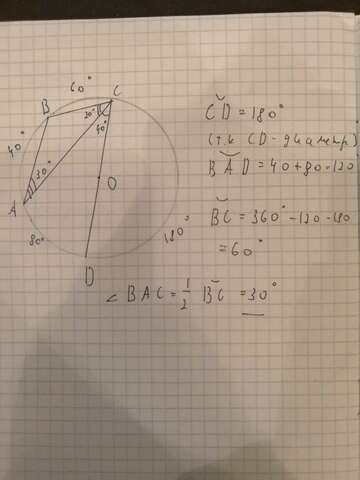 60°
C
B
20°
40°
40°
30°
O
A
80°
180°
D
C͝D = 180°
(т.к CD - диаметр)
B͝AD = 40 + 80 - 120
B͝C = 360° - 120 - 180
= 60°
∠ BAC = 1/2 B͝C = 30°